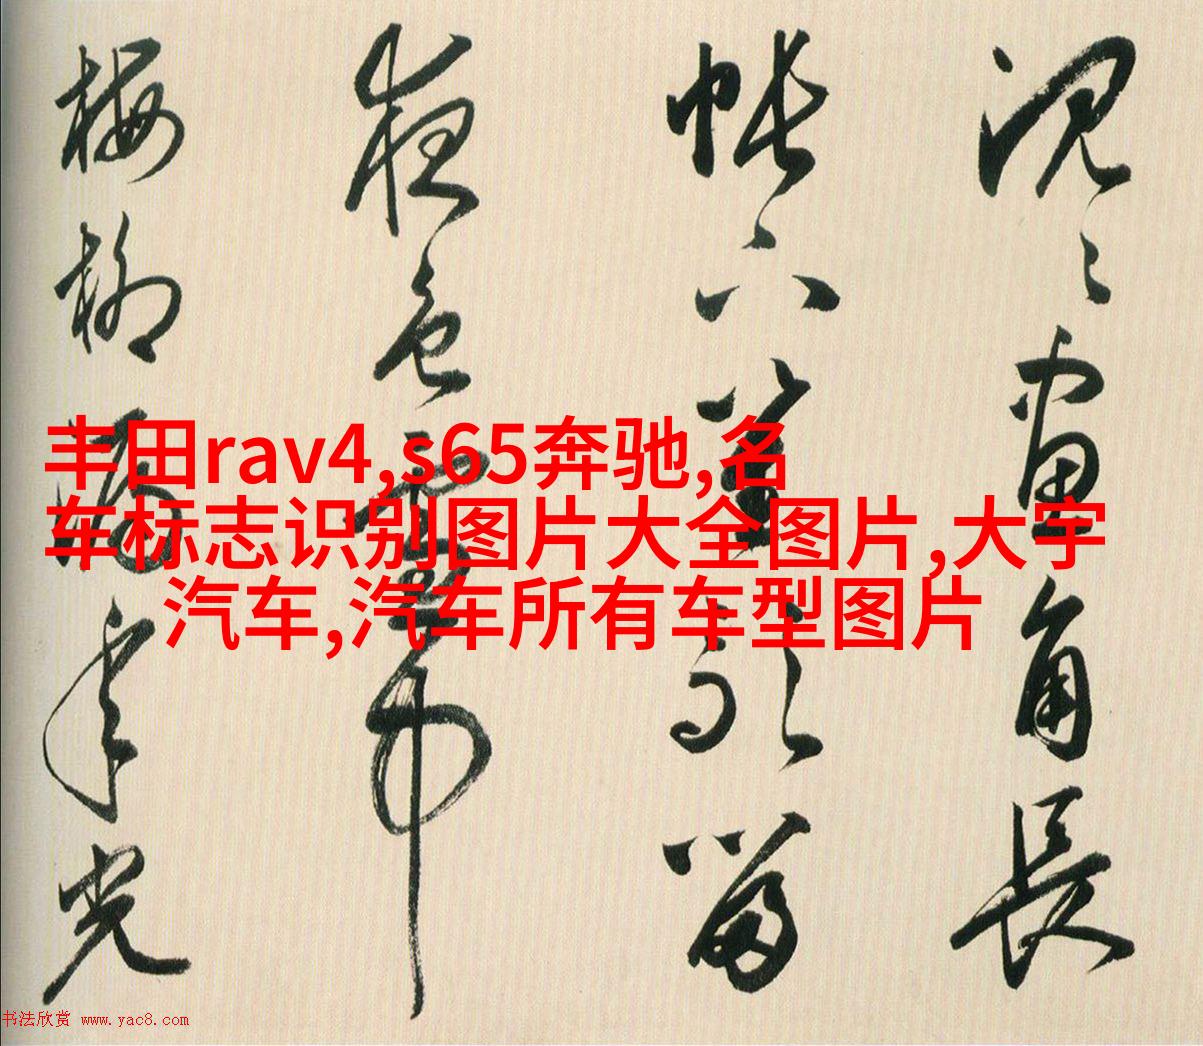 丰田rav4,s65奔驰,名
车标志识别图片大全图片,大宇
汽车,汽车所有车型图片
画角長
帐
留
夜色
梅柳
年光
书法欣赏 www.yac8.com